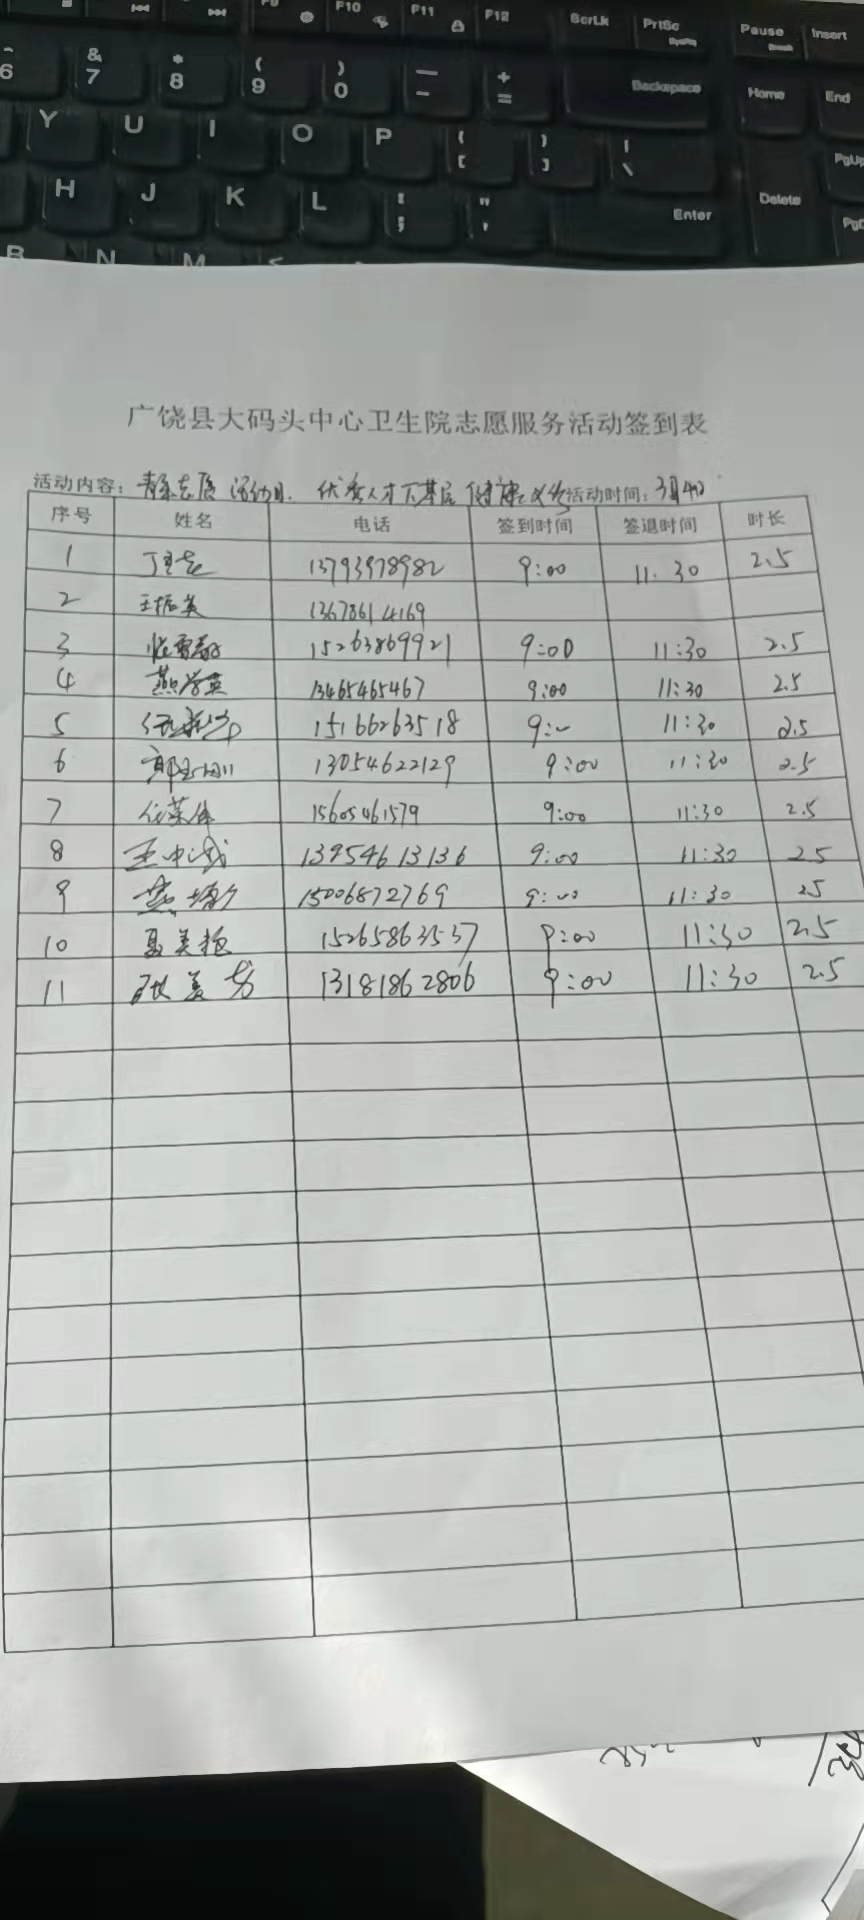 F9 F10 F11 F12 ScrLk PrtSc SysRq Pause Break Insert
6 & 7 * 8 ( 9 ) 0 — - + = Backspace Home End
Y U I O P { [ } ] | \ PgUp
H J K L : ; " ' Enter Delete
B N M <
广饶县大码头中心卫生院志愿服务活动签到表
活动内容: 活动日. 优秀人才下基层 健康义诊 活动时间: 3月4日
序号 姓名 电话 签到时间 签退时间 时长
1 13793978982 9:00 11:30 2.5
2 王振英 13678614169
3 15263869921 9:00 11:30 2.5
4 燕学英 13465465467 9:00 11:30 2.5
5 15166263518 11:30 2.5
6 13054622129 9:00 11:30 2.5
7 15605461579 9:00 11:30 2.5
8 王中 13954613136 9:00 11:30 2.5
9 15006872769 9:00 11:30 25
10 聂美艳 15265863537 9:00 11:30 2.5
11 张美芳 13181862806 9:00 11:30 2.5